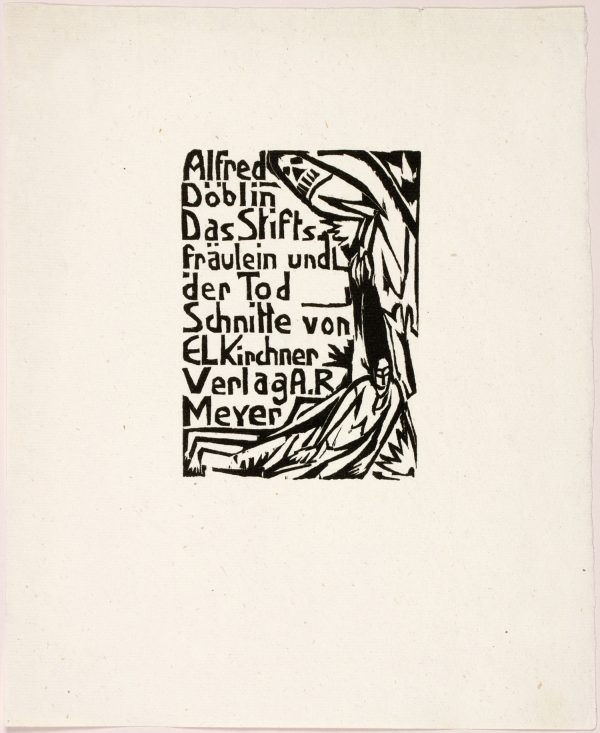 Alfred
Döblin
Das Stifts
fräulein und
der Tod
Schnitte von
EL Kirchner
Verlag A.R.
Meyer